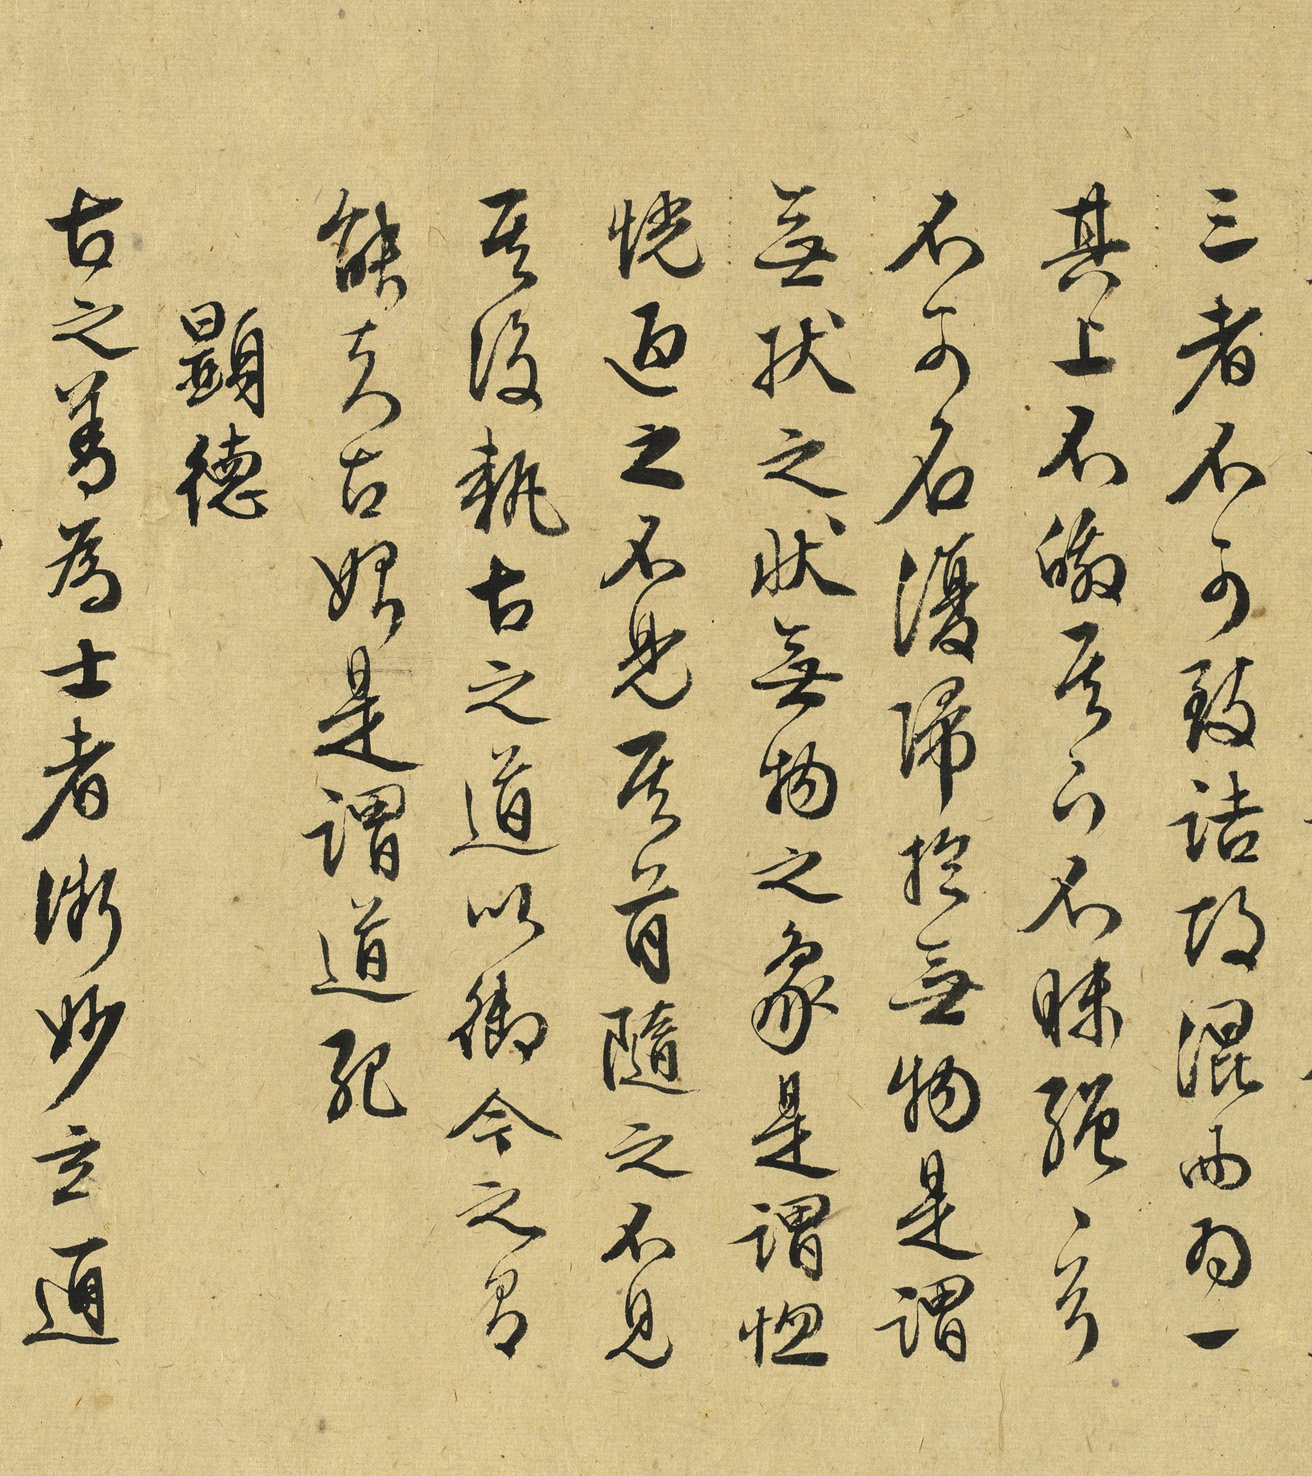 三者不可致詰故混而為一
其上不皦其下不昧繩〻兮
不可名復歸於無物是謂
無狀之狀無物之象是謂惚
恍迎之不見其首隨之不見
其後執古之道以御今之有
能知古始是謂道紀
顯德
古之善為士者微妙玄通